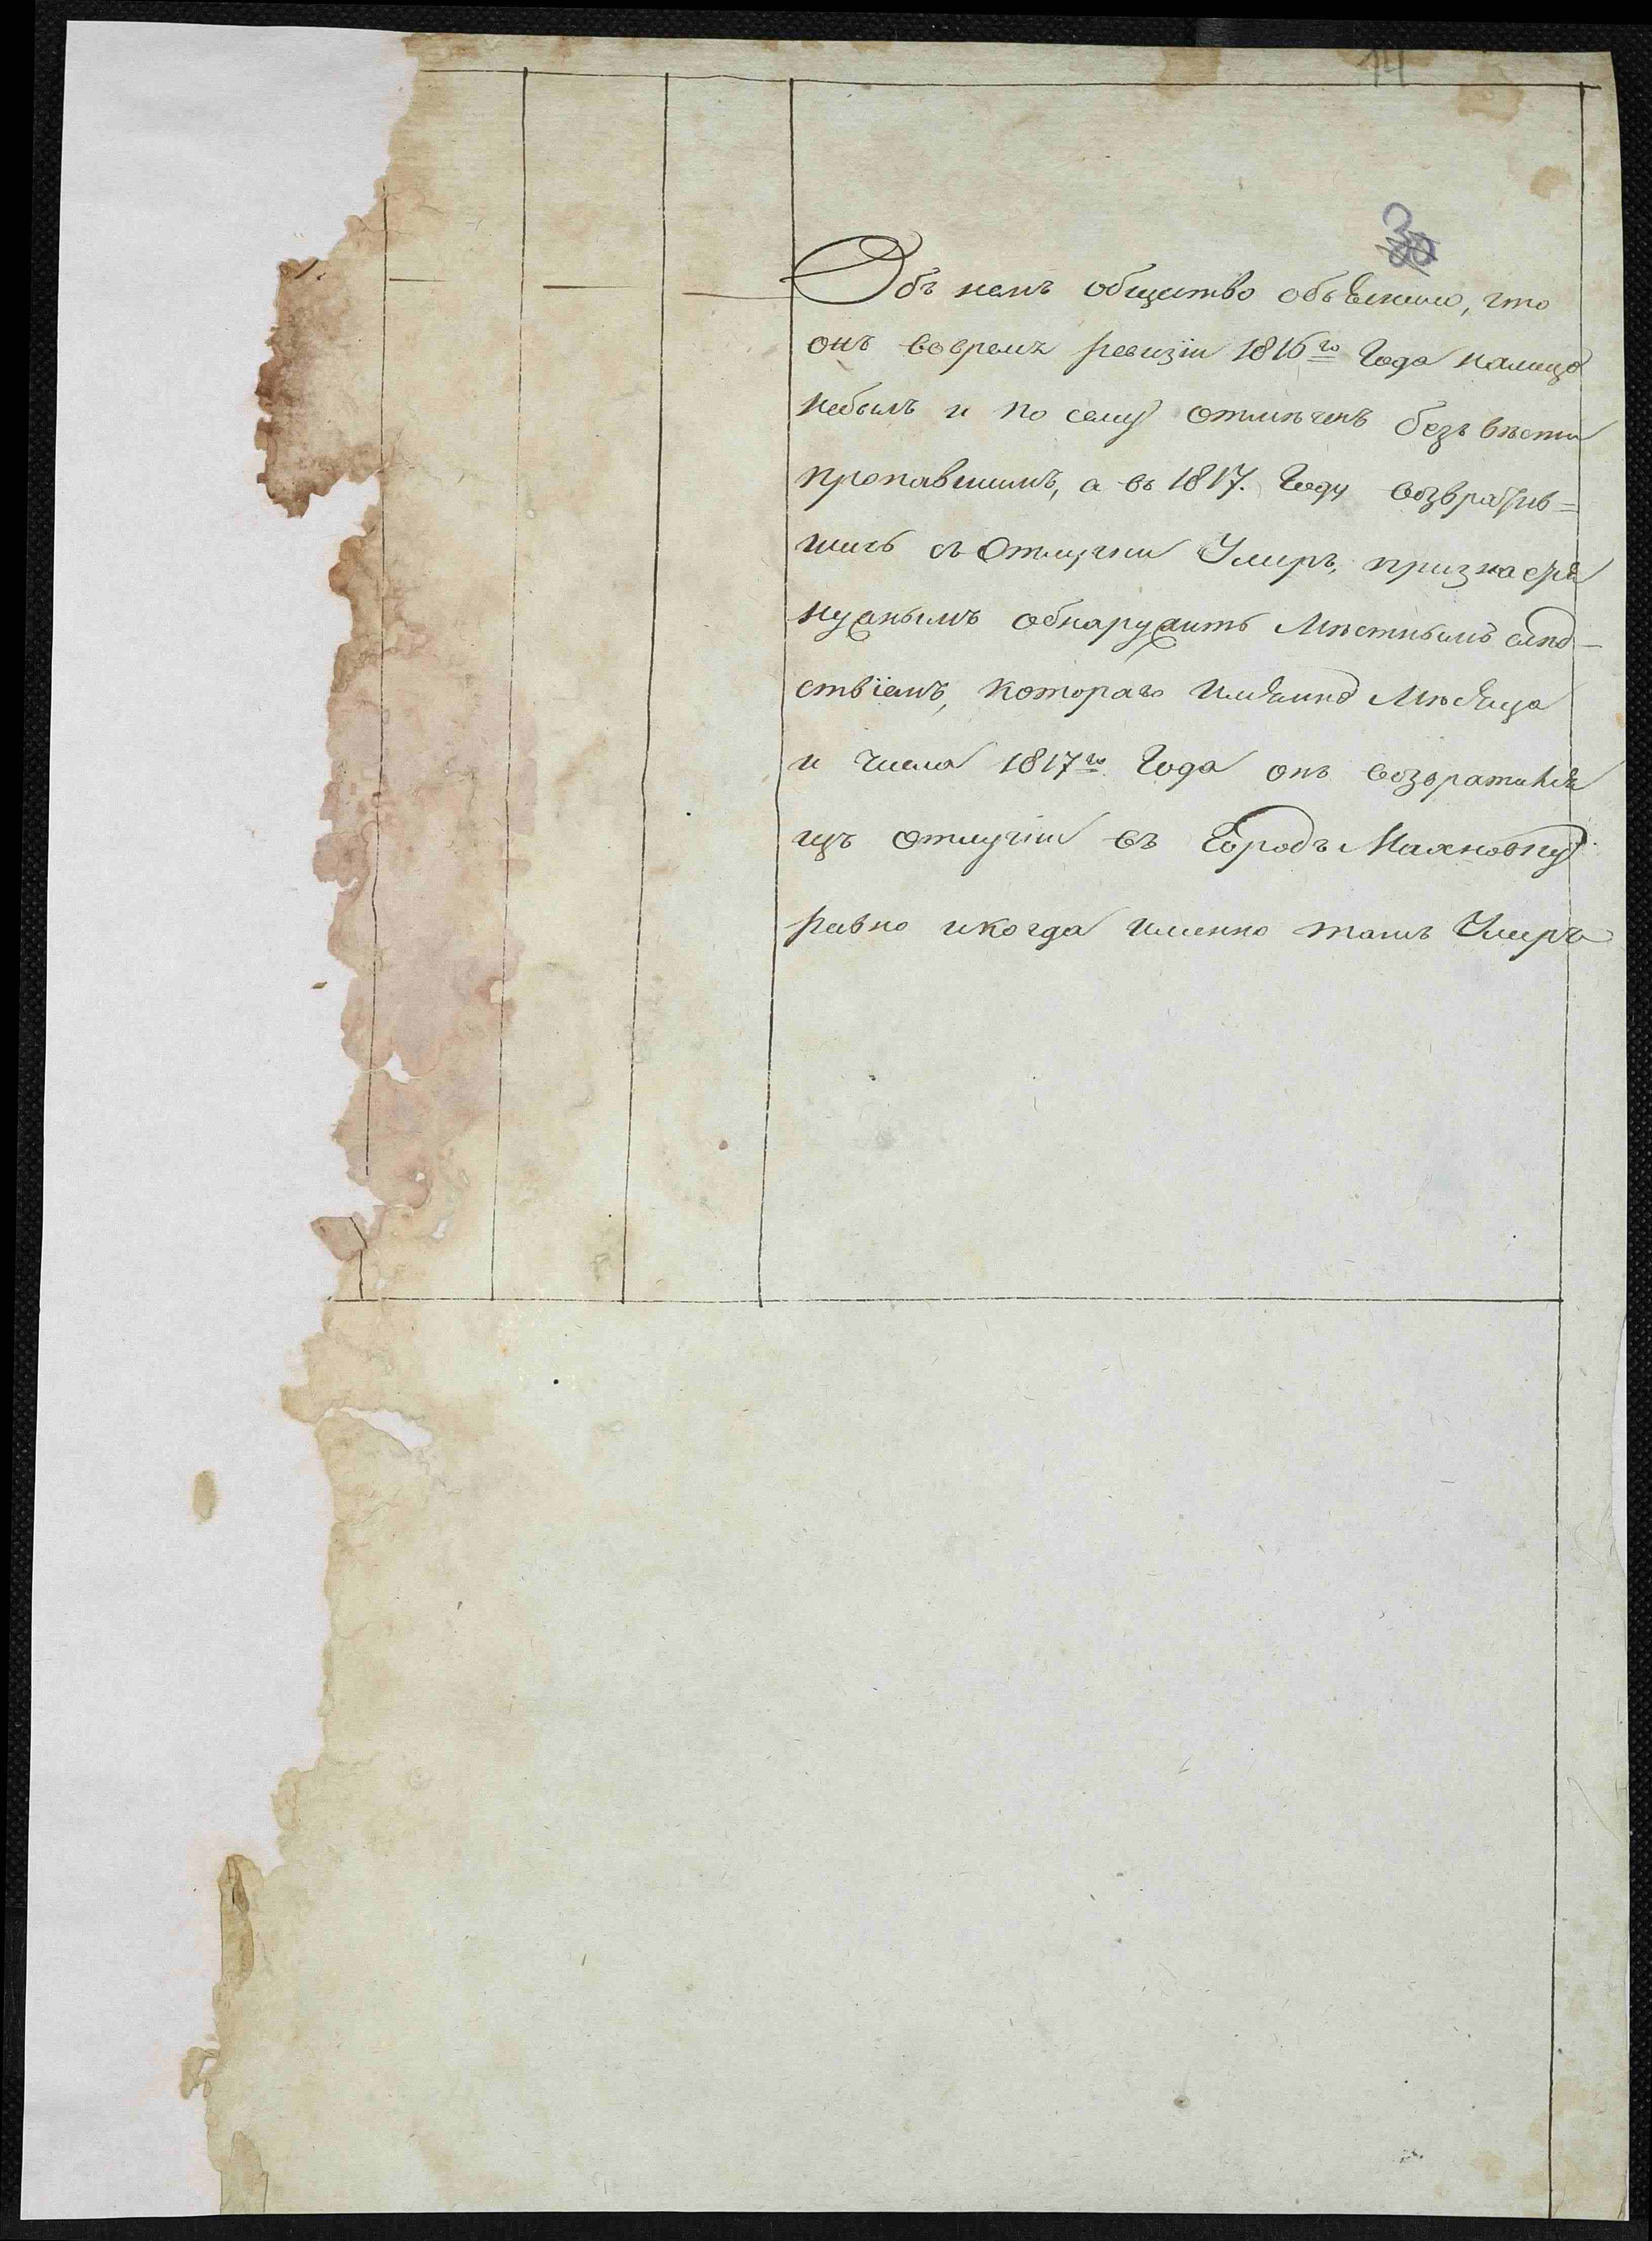 14
30
Объ немъ общество объявило, что
онъ вовремя ревизіи 1816го Года налицо
небылъ и по сему отмѣченъ безъ вѣсти
пропавшимъ, а въ 1817. Году возвратив=
шись съ Отлучки Умеръ, признается
нужнымъ обнаружить Мѣстнымъ слѣд-
ствіемъ, котораго Имянно Мѣсяца
и Числа 1817го Года онъ возвратился
изъ отлучки въ Городъ Махновку
равно икогда именно тамъ Умеръ